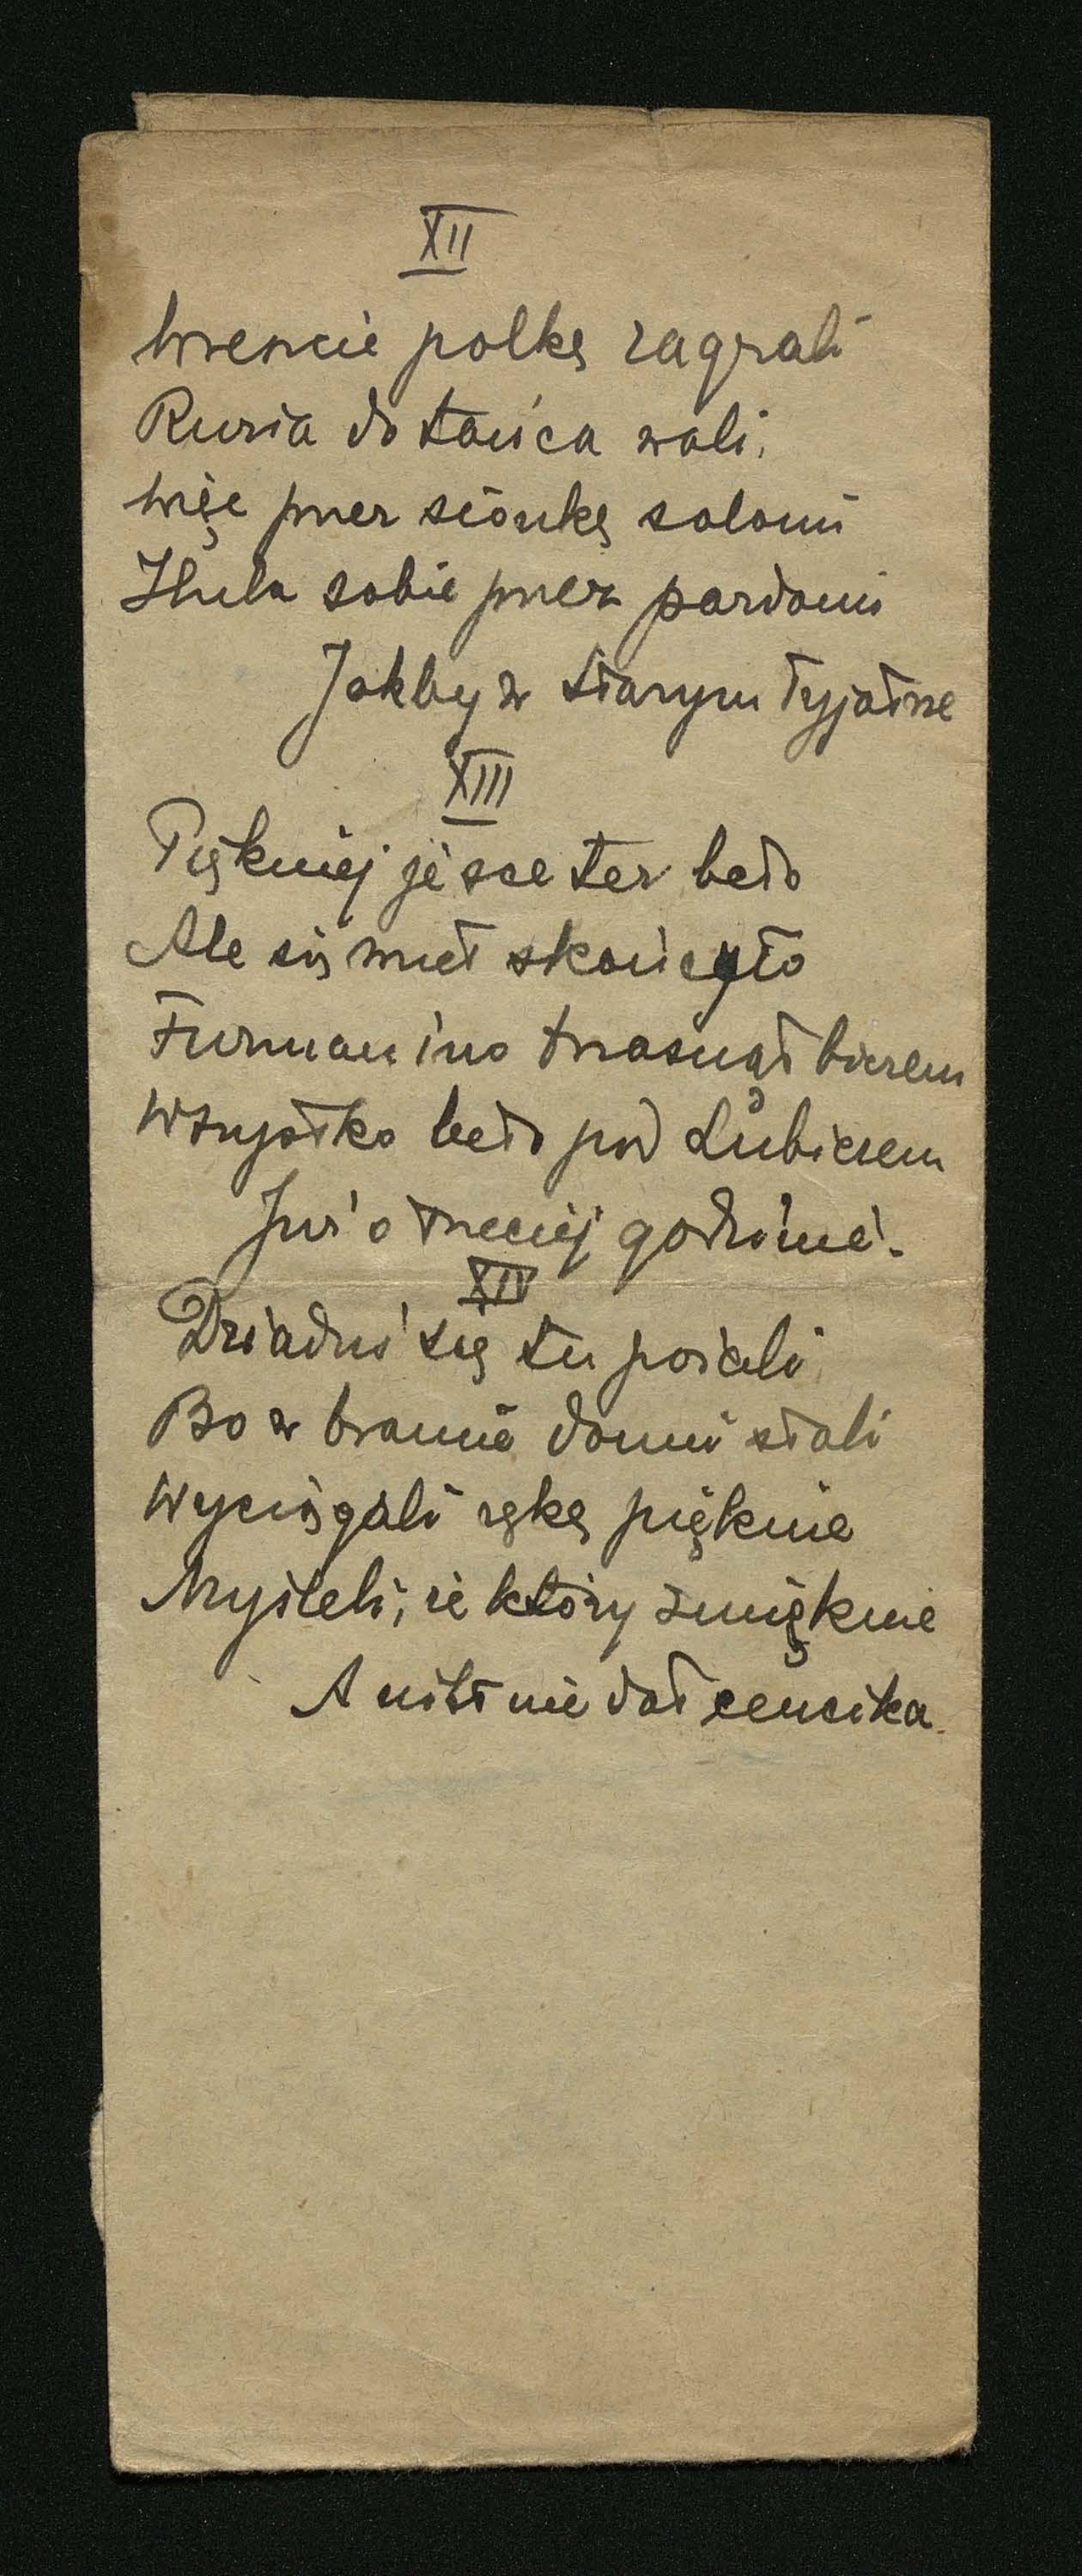 XII
Wreście polkę zagrali
Ruzia do tańca wali,
Więc przez siónkę saloni
Hula sobie przez pardoni
Jakby w starym tyjatrze
XIII
Piękniej jesce ter beło
Ale się wnet skońcyło
Furman ino trzasnął bicem
Wszystko beło pod Lubiczem
Juz o trzeciej godzinie.
XIV
Dziadui się tu
Bo w bramie domu stali
Wyciągali rękę pięknie
Myśleli, ze który zmięknie
A nikt nie dał cencika